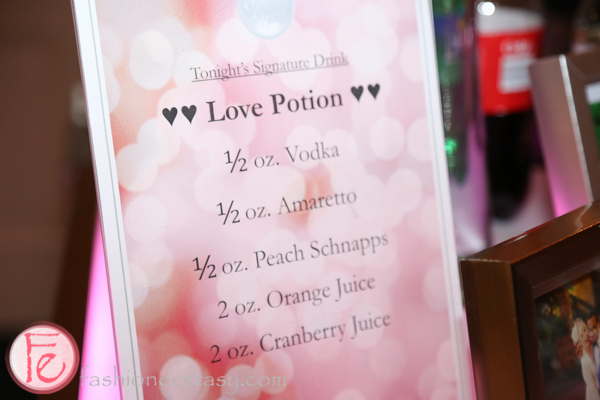 Tonight's Signature Drink
♥♥ Love Potion ♥♥
½ oz. Vodka
½ oz. Amaretto
½ oz. Peach Schnapps
2 oz. Orange Juice
2 oz. Cranberry Juice
Fe